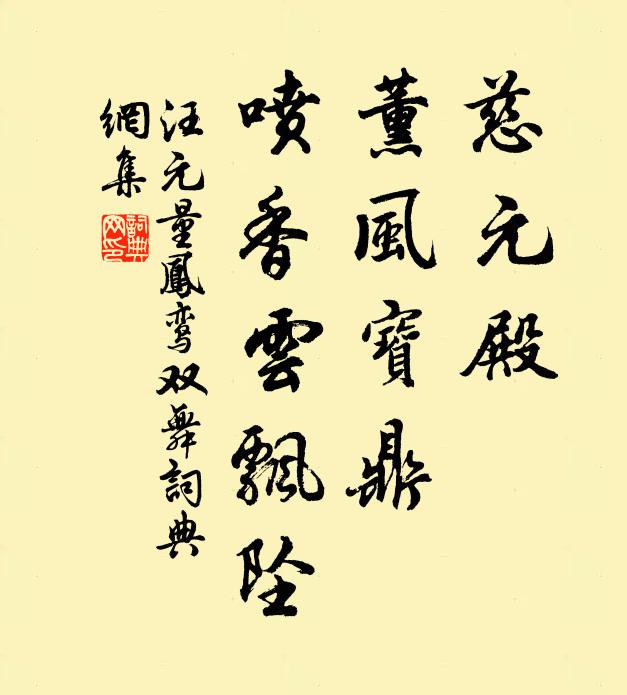 慈元殿
薰風寶鼎
噴香雲飄墜
汪元量鳳鸾双舞詞典
網集
詞典网印